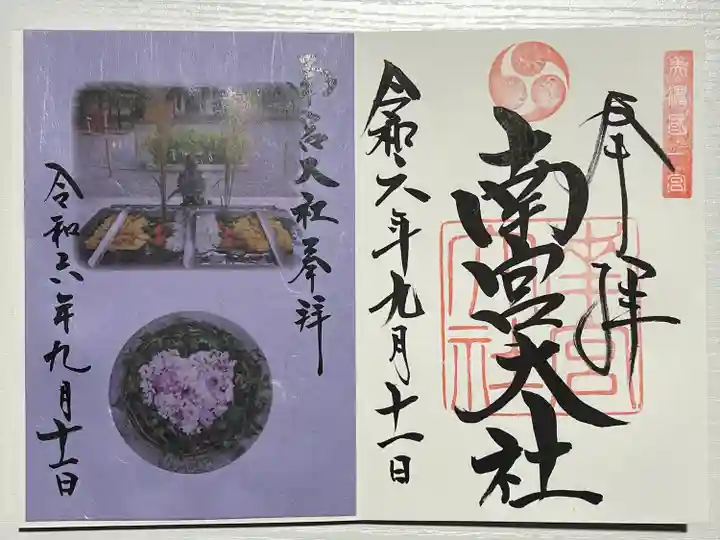 美濃國一宮
奉拝
南宮大社
南宮大社
令和六年九月十一日
南宮大社奉拝
令和六年九月十一日